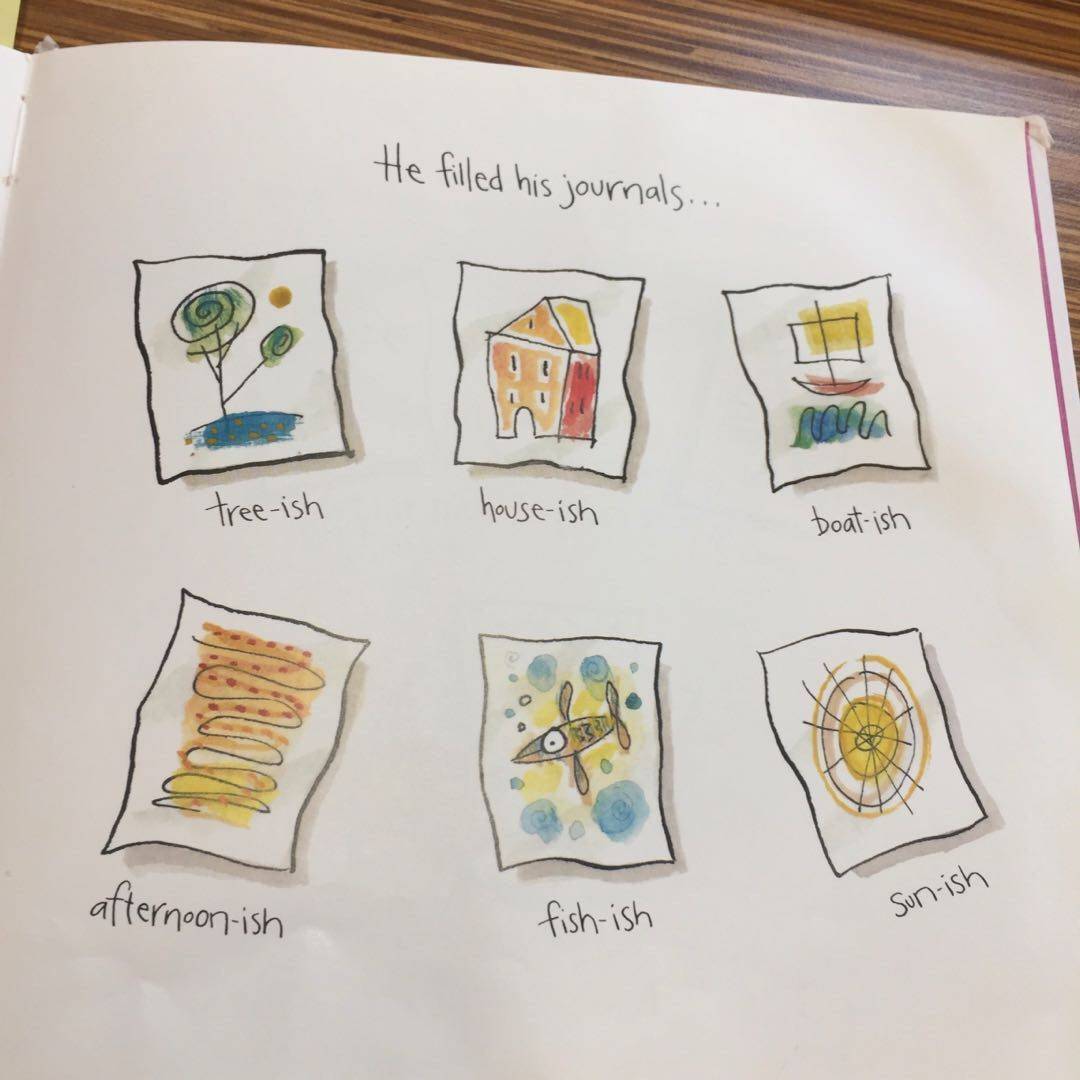 He filled his journals...
tree-ish
house-ish
boat-ish
afternoon-ish
fish-ish
sun-ish